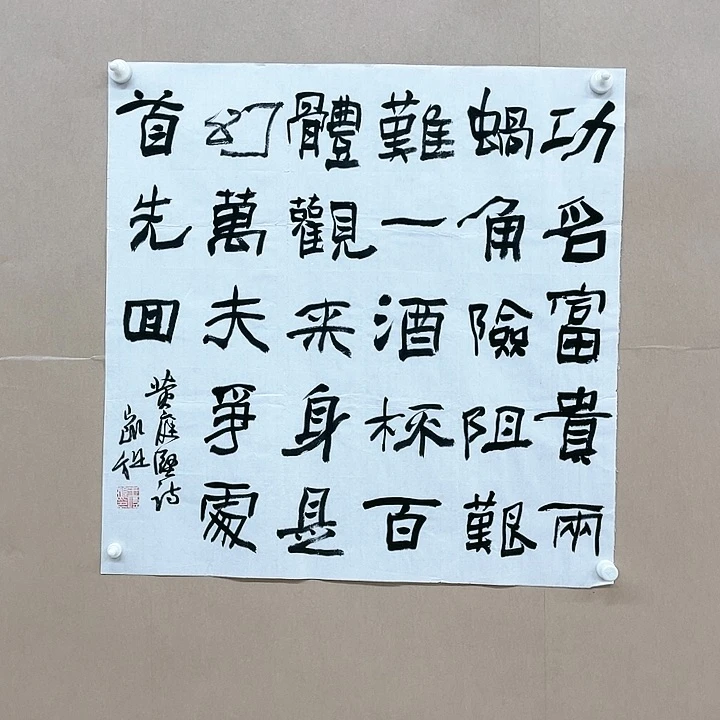 功名富貴兩
蝸角險阻艱
難一酒杯百
體觀来身是
幻萬夫爭處
首先回
黄庭堅诗